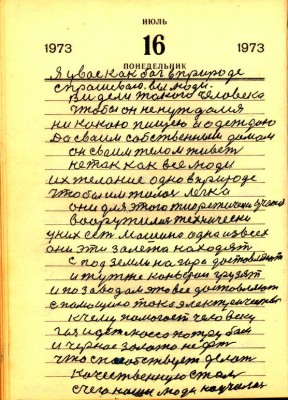 ИЮЛЬ
1973 16 1973
ПОНЕДЕЛЬНИК
Я у вас как бог в природе
спрашиваю вы люди.
Видели такого человека
чтобы он не нуждался
ни какою пищею и одеждою
Да своим собственным домом
он своим телом живет
не так как все люди
их желание одно в природе
чтобы им жилось легко
они для этого теоретически
вооружились технически
у них есть машина одна из всех
они эти залежи находят
с под земли на гора
и тут же грузят
и по заводам это все доставляют
с помощью тока электричества
к чему помогает человеку
газ идет по трубам
и черное золото нефть
что способствует делать
качественную сталь
с чего наши люди научились